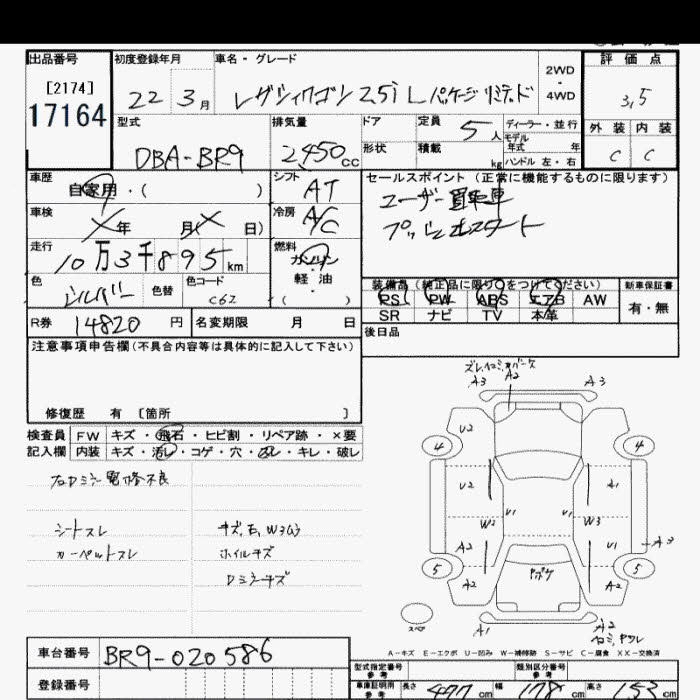 出品番号 初度登録年月 車名・グレード 2WD 4WD 評価点
[2174]
17164
22 3月 レガシィワゴン 2.5i Lパッケージ リミテッド 3.5
型式 排気量 ドア 定員 5人 ディーラー・並行 外装 内装
モデル年式 年
DBA-BR9 2450cc 形状 積載 kg ハンドル 左・右 C C
車歴 自家用・( ) シフト AT セールスポイント (正常に機能するものに限ります)
ユーザー買取車
車検 年 月( 日) 冷房 A/C プッシュスタート
走行 10万3千895km 燃料 ガソリン・軽油・( )
色 シルバー 色替 色コード C6Z
装備品(純正品に限り○をつけてください) 新車保証書
PS PW ABS エアB AW 有・無
SR ナビ TV 本革
R券 14820円 名変期限 月 日 後日品
注意事項申告欄(不具合内容等は具体的に記入して下さい)
修復歴 有 〔箇所 〕
検査員記入欄 FW キズ・飛石・ヒビ割・リペア跡・×要
内装 キズ・汚レ・コゲ・穴・スレ・キレ・破レ
シートスレ
カーペットスレ
キズ、E、W
ホイルキズ
Dミラーキズ
A3 A2 A3
4 4
U2
U2 U1 U1 A1
W2 W3
A2 U1 A3
5 5
A2 ヤボケ A2
スペア A1 A2
A-キズ E-エクボ U-凹み W-補修跡 S-サビ C-腐食 XX-交換済
車台番号 BR9-020586
登録番号
型式指定番号 参考 類別区分番号 参考
車庫証明用 参考 長さ 477cm 幅 178cm 高さ 153cm